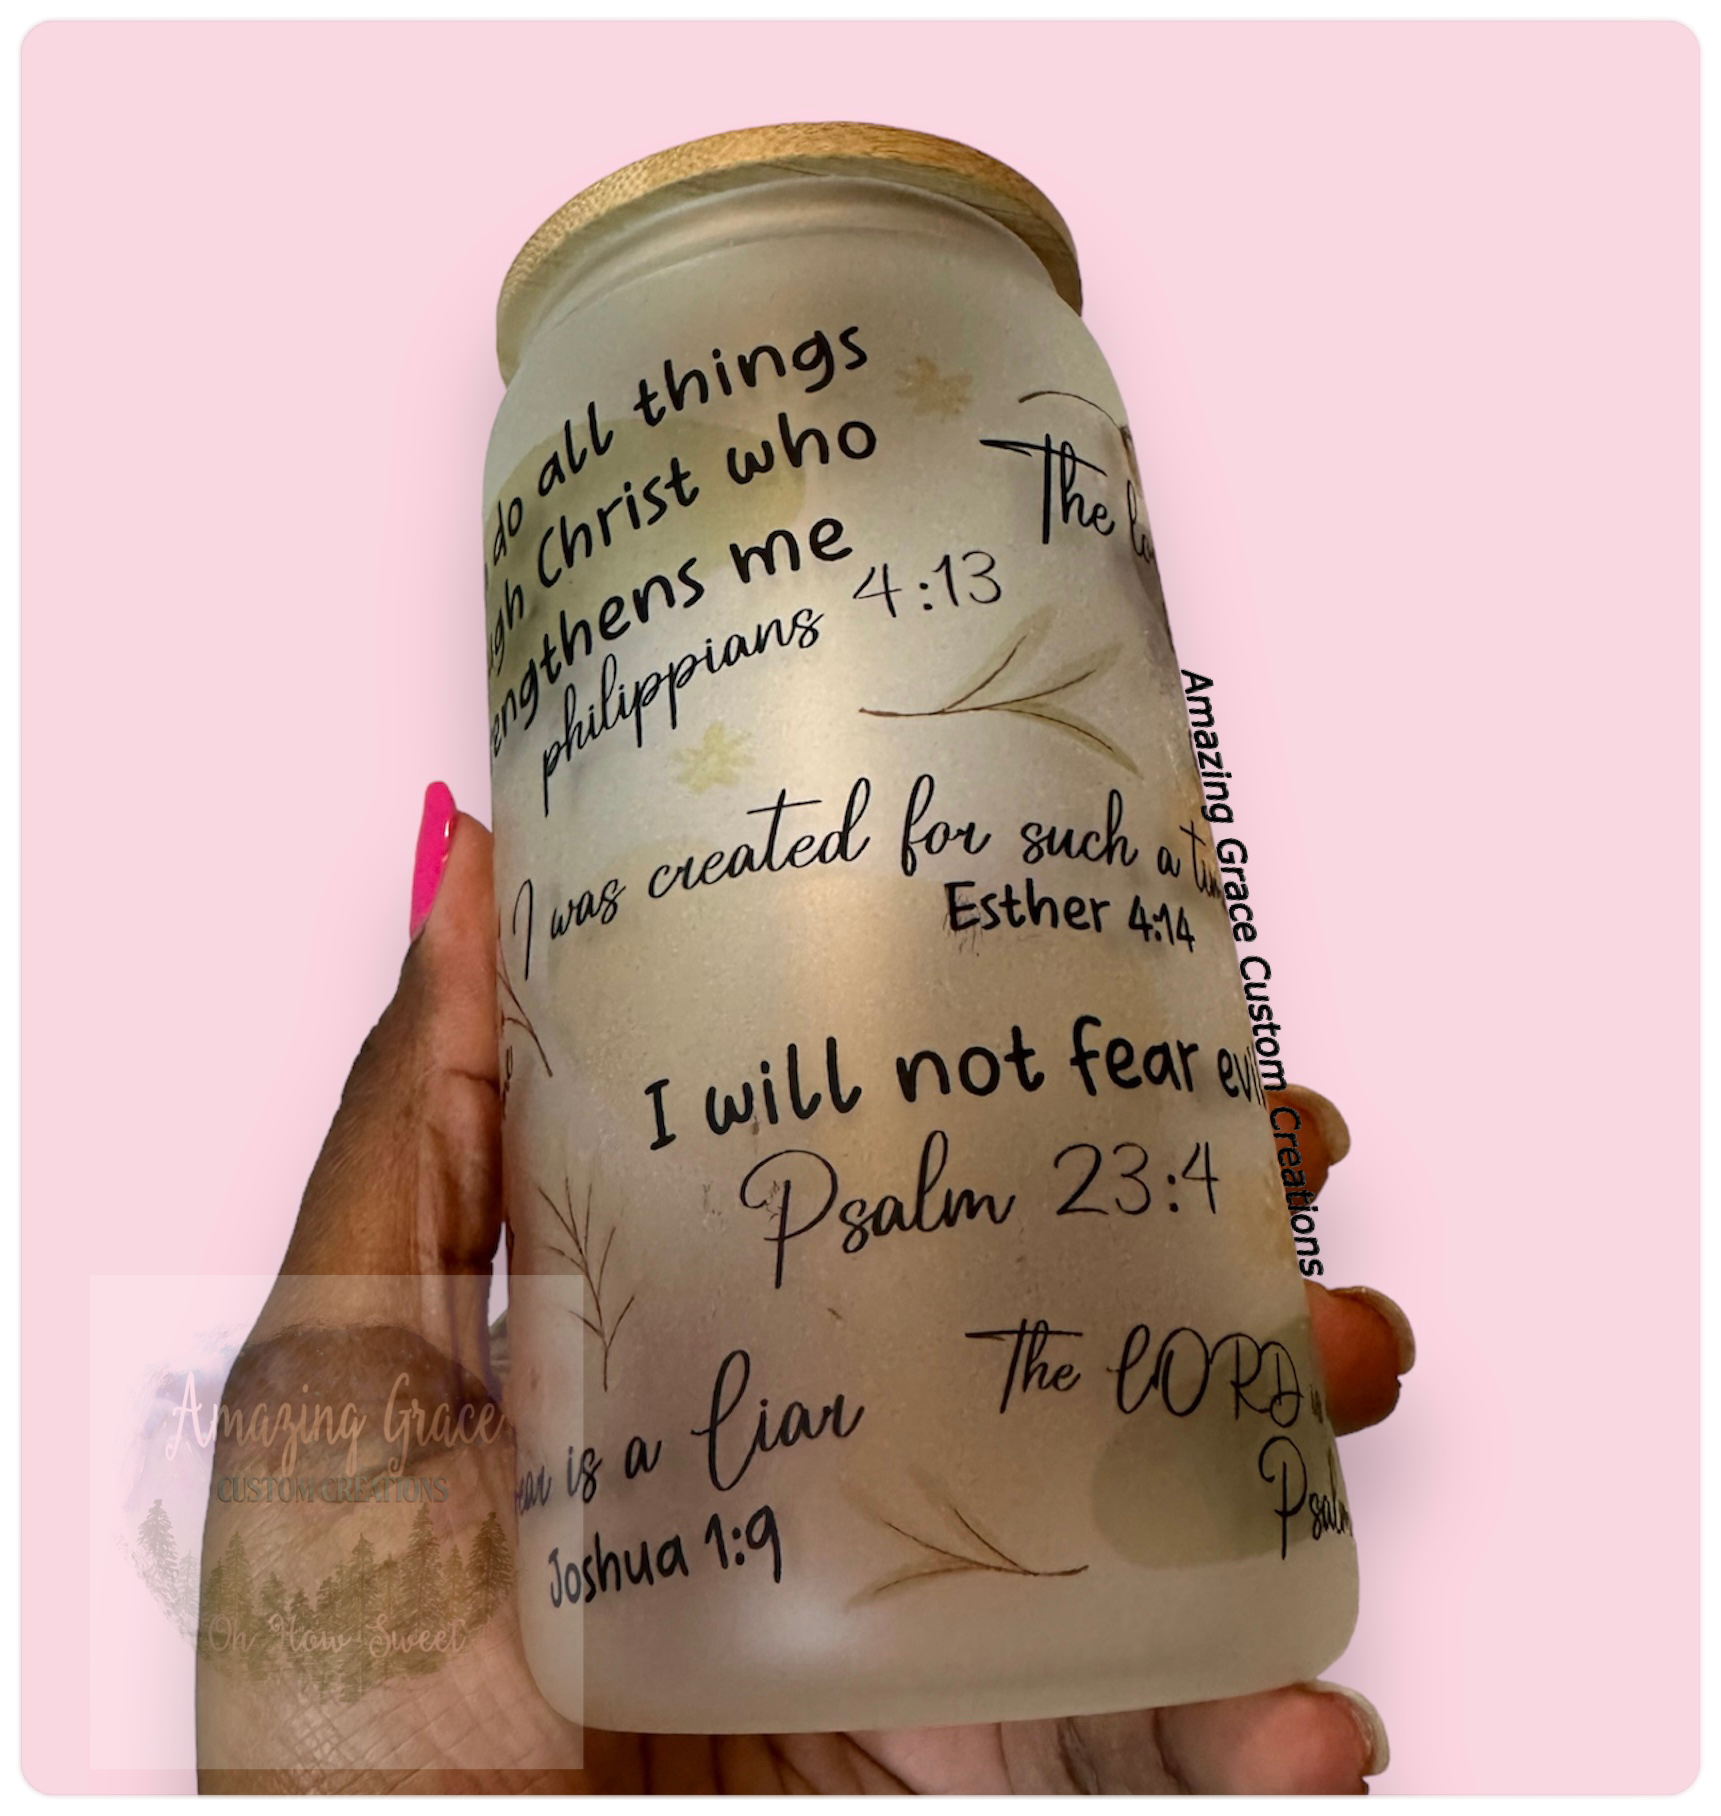 do all things
Christ who
me
philippians 4:13
The
I was created for such a
Esther 4:14
I will not fear
Psalm 23:4
is a liar
Joshua 1:9
The LORD
Amazing Grace Custom Creations
Amazing Grace
CUSTOM CREATIONS
Oh How Sweet